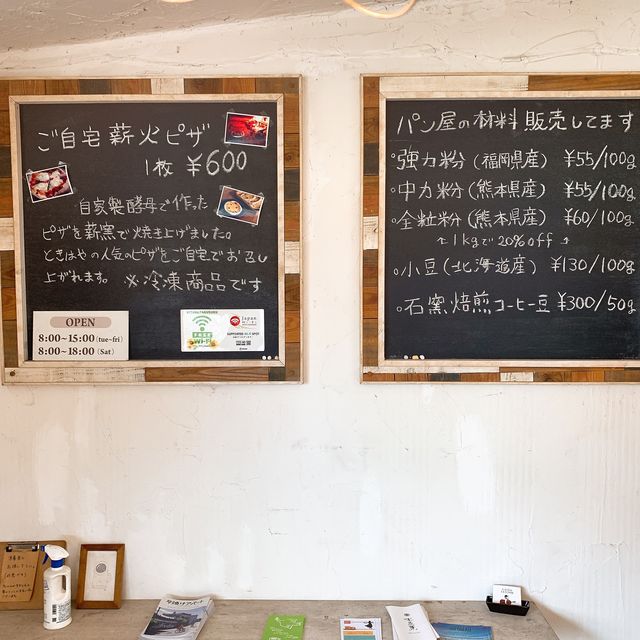 ご自宅薪火ピザ
1枚 ¥600
自家製酵母で作った
ピザを薪窯で焼き上げました。
ときはやの人気のピザをご自宅でお召し
上がれます。 ※冷凍商品です
OPEN
8:00~15:00 (tue~fri)
8:00~18:00 (Sat)
FREE
Wi-Fi
Japan
Wi-Fi
パン屋の材料 販売してます
・強力粉 (福岡県産) ¥55/100g
・中力粉 (熊本県産) ¥55/100g
・全粒粉 (熊本県産) ¥60/100g
↑ 1kgで20%off ↑
・小豆 (北海道産) ¥130/100g
・石窯焙煎コーヒー豆 ¥300/50g